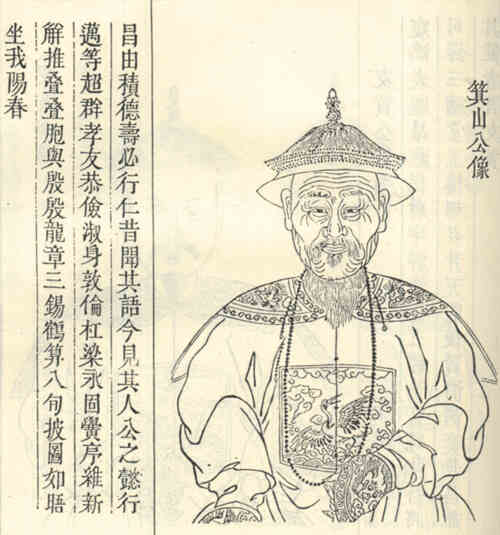 箕山公像
昌由積德壽必行仁昔聞其語今見其人公之懿行
邁等超群孝友恭儉淑身敦倫杠梁永固黌序維新
解推叠叠胞與殷殷龍章三錫鶴算八旬披圖如晤
坐我陽春